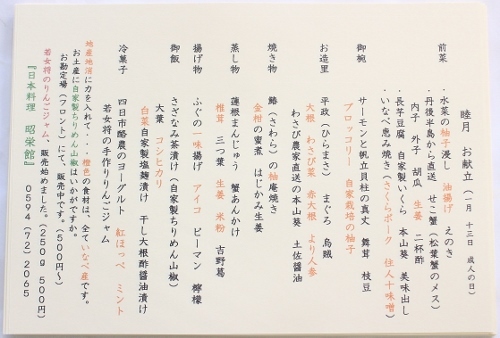 睦月 お献立（一月 十三日 成人の日）
前菜
・水菜の柚子浸し 油揚げ えのき
・丹後半島から直送 せこ蟹（松葉蟹のメス）
内子 外子 胡瓜 生姜 二杯酢
・長芋豆腐 自家製いくら 本山葵 美味出し
・いなべ恵み焼き（さくらポーク 住人十味噌）
御椀
サーモンと帆立貝柱の真丈 舞茸 枝豆
ブロッコリー 自家栽培の柚子
お造里
平政（ひらまさ） まぐろ 烏賊
大根 わさび菜 赤大根 より人参
わさび農家直送の本山葵 土佐醤油
焼き物
鰆（さわら）の柚庵焼き
金柑の蜜煮 はじかみ生姜
蒸し物
蓮根まんじゅう 蟹あんかけ
椎茸 三つ葉 生姜 米粉 吉野葛
揚げ物
ふぐの一味揚げ アイコ ピーマン 檸檬
御飯
さざなみ茶漬け（自家製ちりめん山椒）
大葉 コシヒカリ
白菜自家製塩麹漬け 干し大根酢醤油漬け
冷菓子
四日市酪農のヨーグルト 紅ほっぺ ミント
若女将の手作りりんごジャム
地産地消に力を入れて・・・橙色の食材は、全ていなべ産です。
お土産に自家製ちりめん山椒はいかがですか。
お勘定場（フロント）にて、販売中です。（500円～）
若女将のりんごジャム、販売始めました。（250g 500円）
『日本料理 昭栄館』 0594（72）2065